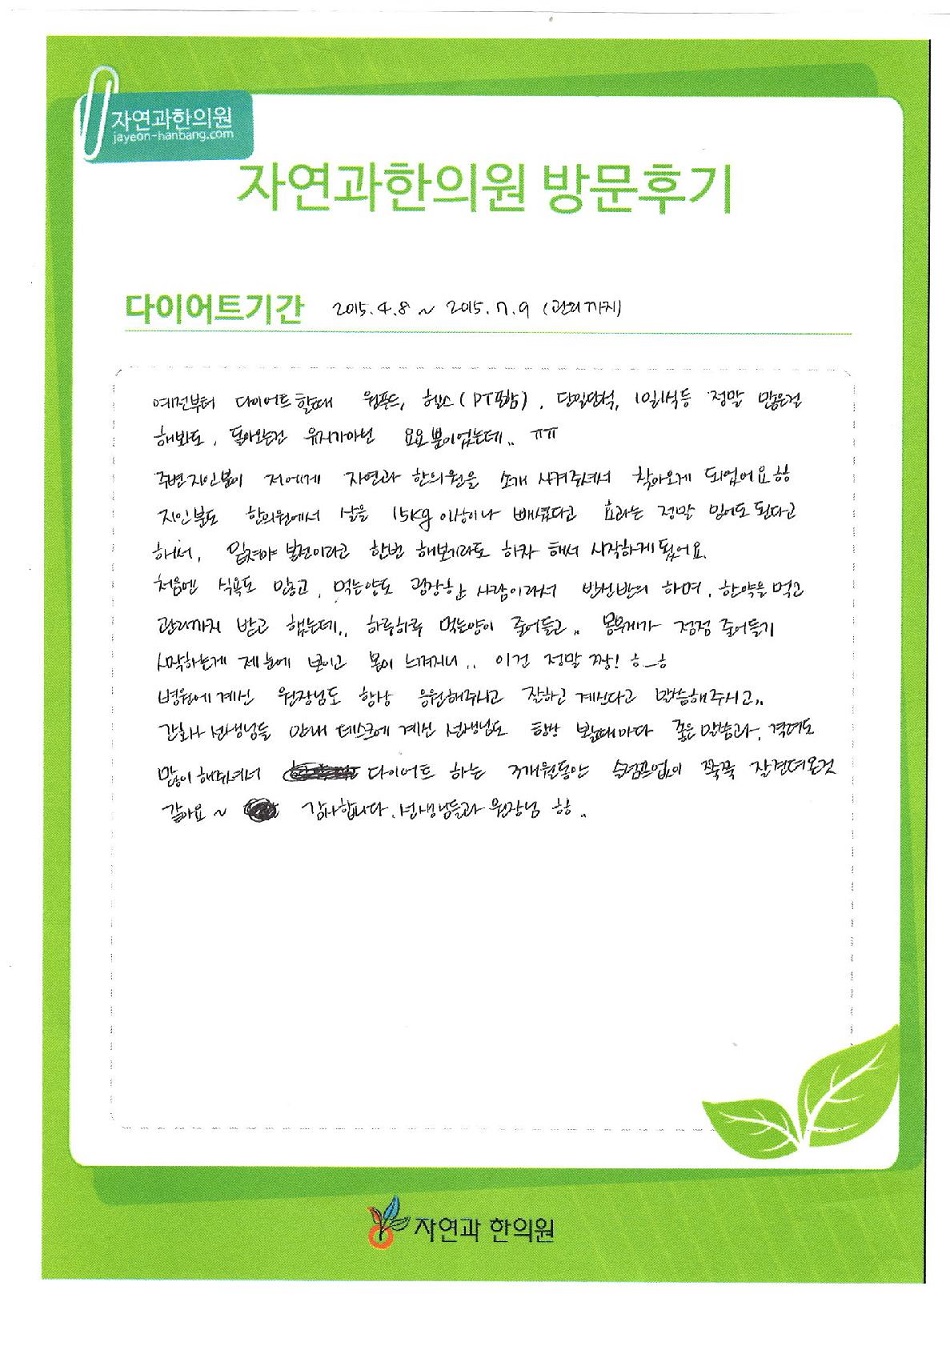 자연과한의원
jayeon-hanbang.com
자연과한의원 방문후기
다이어트기간 2015.4.8 ~ 2015.7.9 (관리까지)
예전부터 다이어트 할때 원푸드, 헬스 (PT포함), 단일단식, 1일1식등 정말 많은걸
해봐도, 돌아오는건 유지가아닌 요요뿐이었는데.. ㅠㅠ
주변지인분이 저에게 자연과 한의원을 소개 시켜주셔서 찾아오게 되었어요 ㅎㅎ
지인분도 한의원에서 살을 15kg 이상이나 빼셨다고 효과는 정말 믿어도 된다고
하셔서, 밑져야 본전이라고 한번 해보기라도 하자 해서 시작하게 됬어요.
처음엔 식욕도 많고, 먹는양도 굉장한 사람이라서 반신반의 하며, 한약을 먹고
관리까지 받고 했는데.. 하루하루 먹는양이 줄어들고.. 몸무게가 점점 줄어들기
시작하는게 제 눈에 보이고 몸이 느껴지니.. 이건 정말 짱! ㅎ_ㅎ
병원에 계신 원장님도 항상 응원해주시고 잘하고 계신다고 말씀해주시고..
간호사 선생님들 안내 데스크에 계신 선생님도 항상 볼때마다 좋은 말씀과, 격려도
많이 해줘셔서 다이어트 하는 3개월동안 쭉쭉 잘견뎌온것
같아요 ~ 감사합니다. 선생님들과 원장님 ㅎㅎ..
자연과 한의원